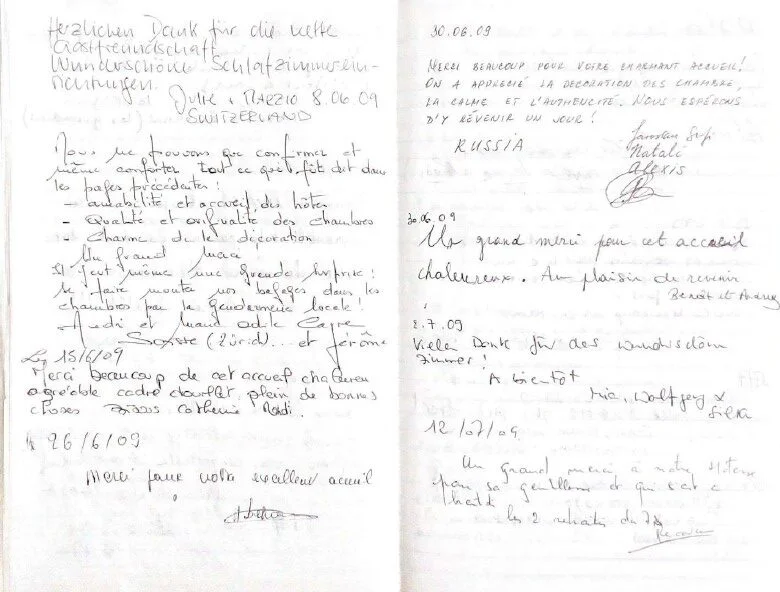 Herzlichen Dank für die nette
Gastfreundschaft
Wunderschöne Schlafzimmerein-
richtungen.
8.06.09
SWITZERLAND
Nous ne pouvons que confirmer et
même conforter tout ce qui fût dit dans
les pages précédentes :
- amabilité et accueil des hôtes
- Qualité et originalité des chambres
- Charme de la décoration
Un grand
Et petit même une grande surprise :
se faire monter nos bagages dans les
chambres par la Gendarmerie locale !
et
Suisse (Zürich)... et Jérôme
15/6/09
Merci beaucoup de cet accueil chaleureux
agréable cadre douillet plein de bonnes
choses Catherine
26/6/09
Merci pour votre excellent accueil
30.06.09
MERCI BEAUCOUP POUR VOTRE CHARMANT ACCUEIL!
ON A APPRECIÉ LA DECORATION DES CHAMBRE,
LA CALME ET L'AUTHENCITÉ. NOUS ESPÉRONS
D'Y REVENIR UN JOUR!
RUSSIA
Natali
ALEXIS
30.06.09
Un grand merci pour cet accueil
chaleureux. Au plaisir de revenir
Benoît et Audrey
2.7.09
Vielen Dank für das
Zimmer!
A bientôt
Wolfgang &
Silka
12/07/09
Un grand merci à notre Hôtesse
pour sa gentillesse et qui s'est
les 2 retraités du 78